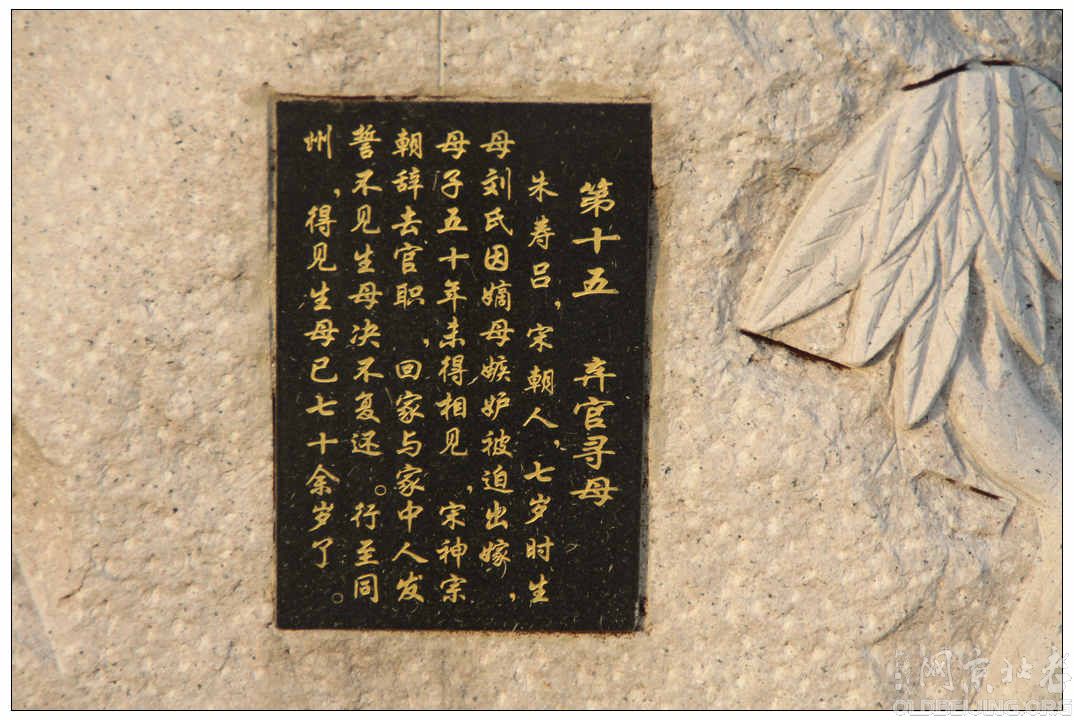 第十五 弃官寻母
朱寿吕，宋朝人，七岁时生
母刘氏因嫡母嫉妒被迫出嫁，
母子五十年未得相见，宋神宗
朝辞去官职，回家与家中人发
誓不见生母决不复还。行至同
州，得见生母已七十余岁了。
老北京网
OLDBEIJING.ORG